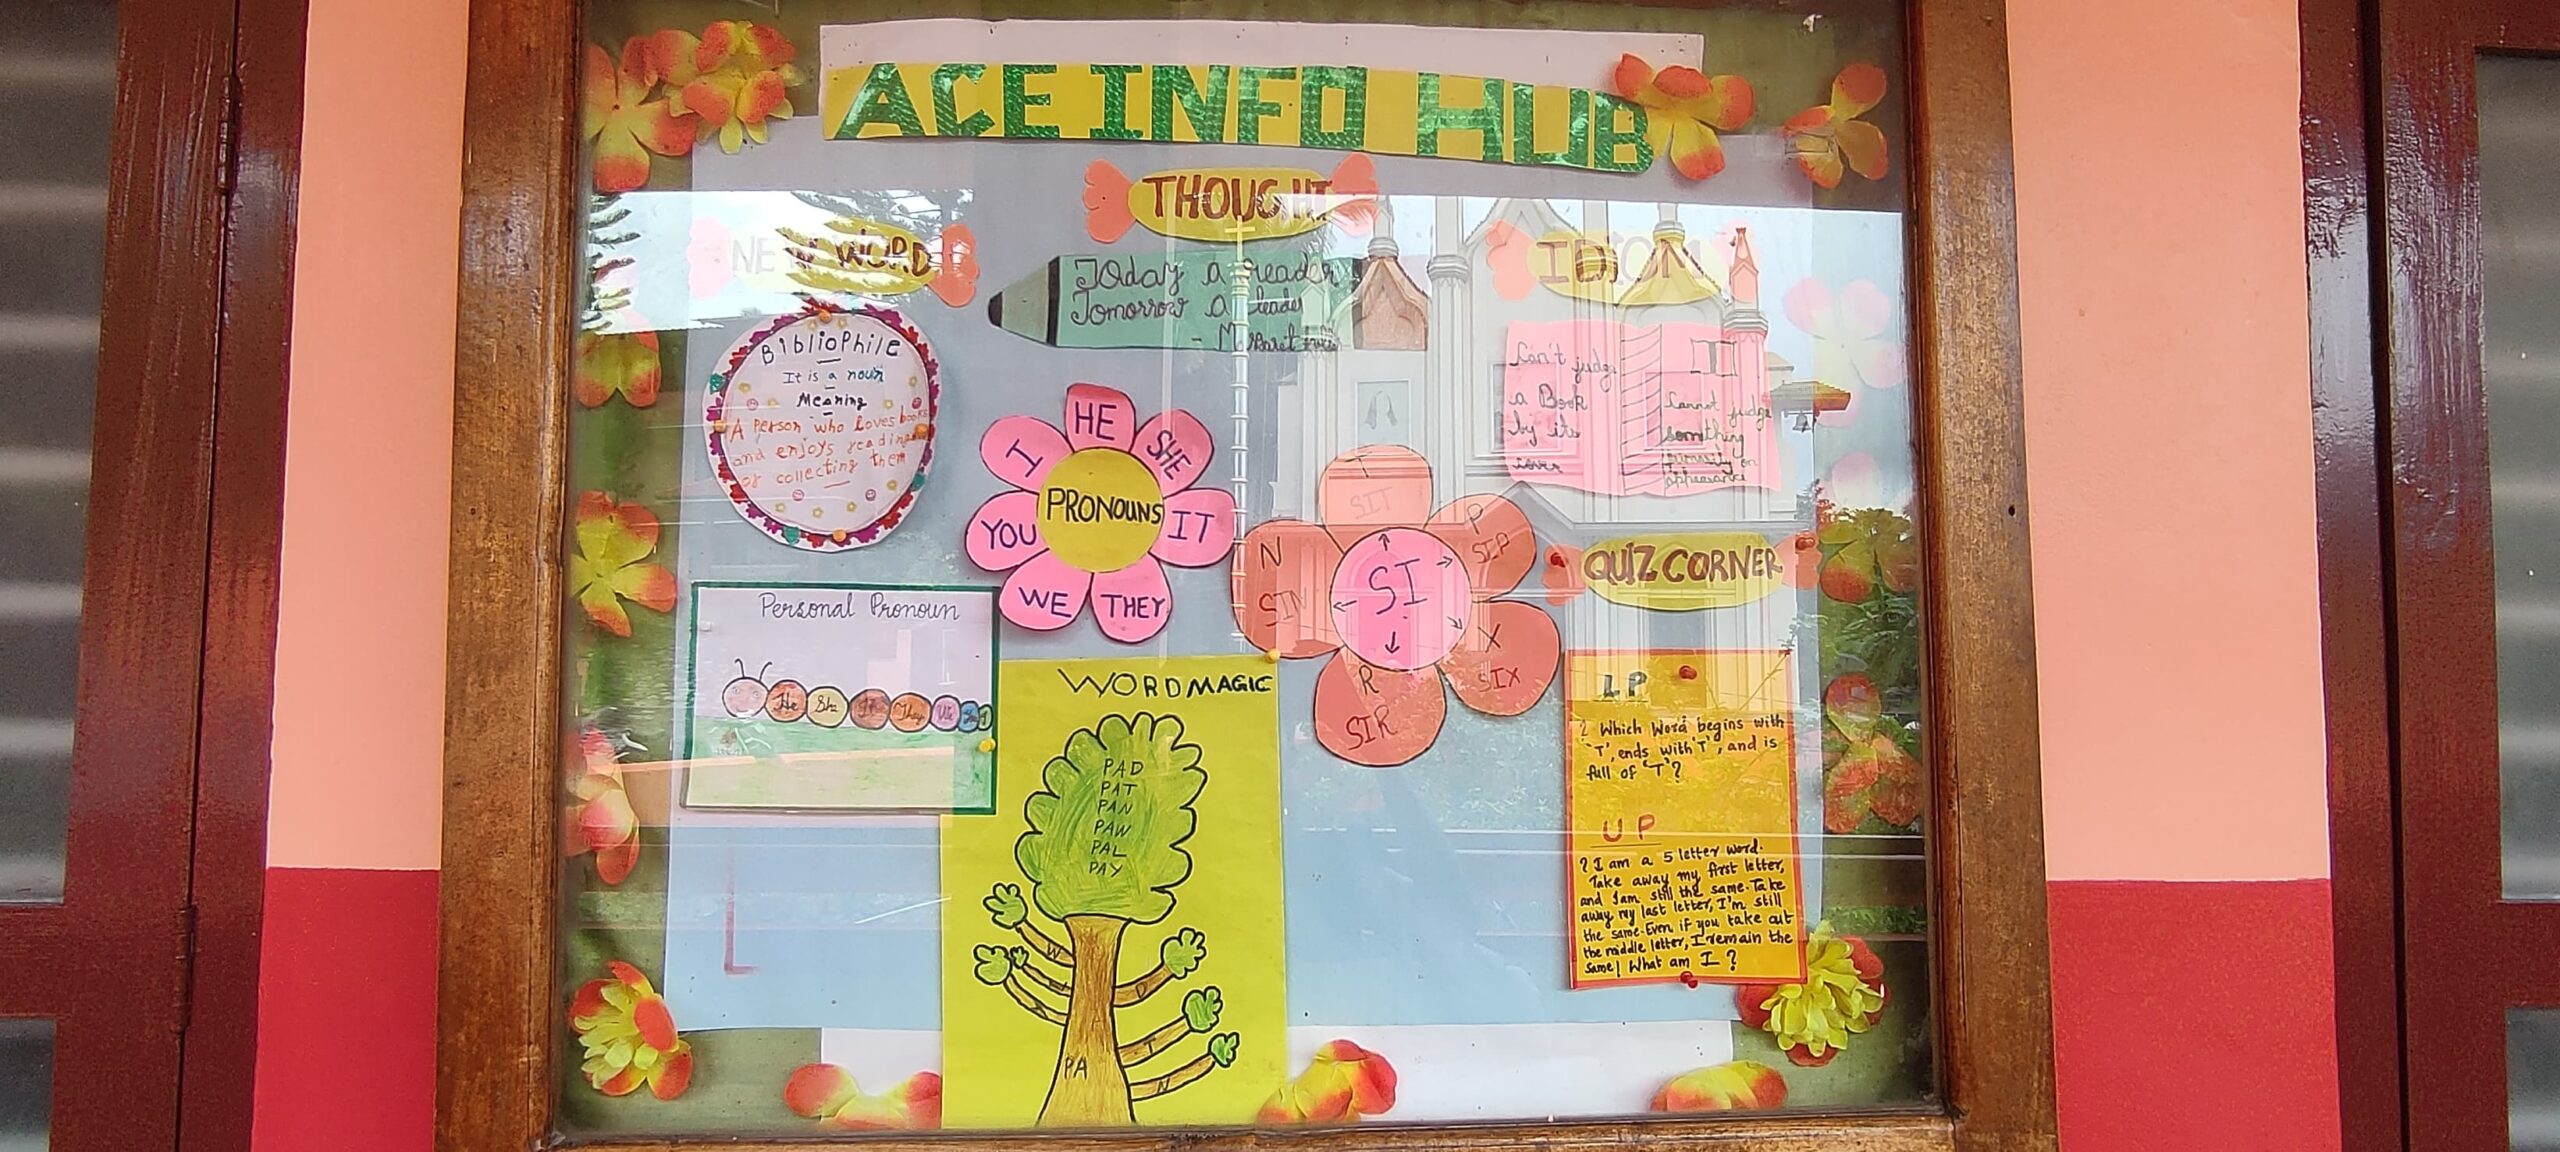 ACE INFO HUB
THOUGHT
Today a reader
Tomorrow a leader
NEW WORD
BiblioPhile
It is a noun
Meaning
A Person who loves books
and enjoys reading
or collecting them
IDIOM
Can't judge
a Book
by its
cover
Cannot judge
something
primarily on
appearance
PRONOUNS
HE
SHE
IT
THEY
WE
YOU
I
SI
T
SIT
P
SIP
X
SIX
R
SIR
N
SIN
Personal Pronoun
He
She
They
We
I
WORD MAGIC
PAD
PAT
PAN
PAW
PAL
PAY
W
D
T
N
PA
QUIZ CORNER
LP
? Which Word begins with
'T', ends with 'T', and is
full of 'T'?
UP
? I am a 5 letter word.
Take away my first letter,
and I am still the same. Take
away my last letter, I'm still
the same. Even if you take out
the middle letter, I remain the
same! What am I ?